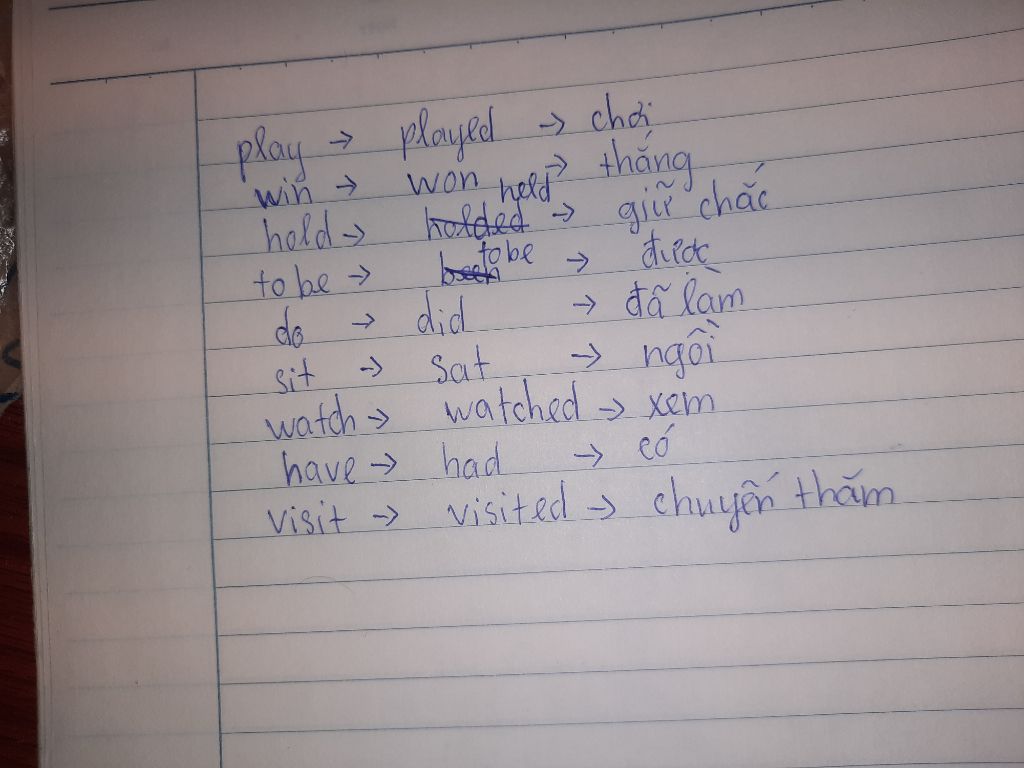 play → played → chơi
win → won → thắng
hold → holded held → giữ chắc
to be → been to be → được
do → did → đã làm
sit → sat → ngồi
watch → watched → xem
have → had → có
visit → visited → chuyến thăm